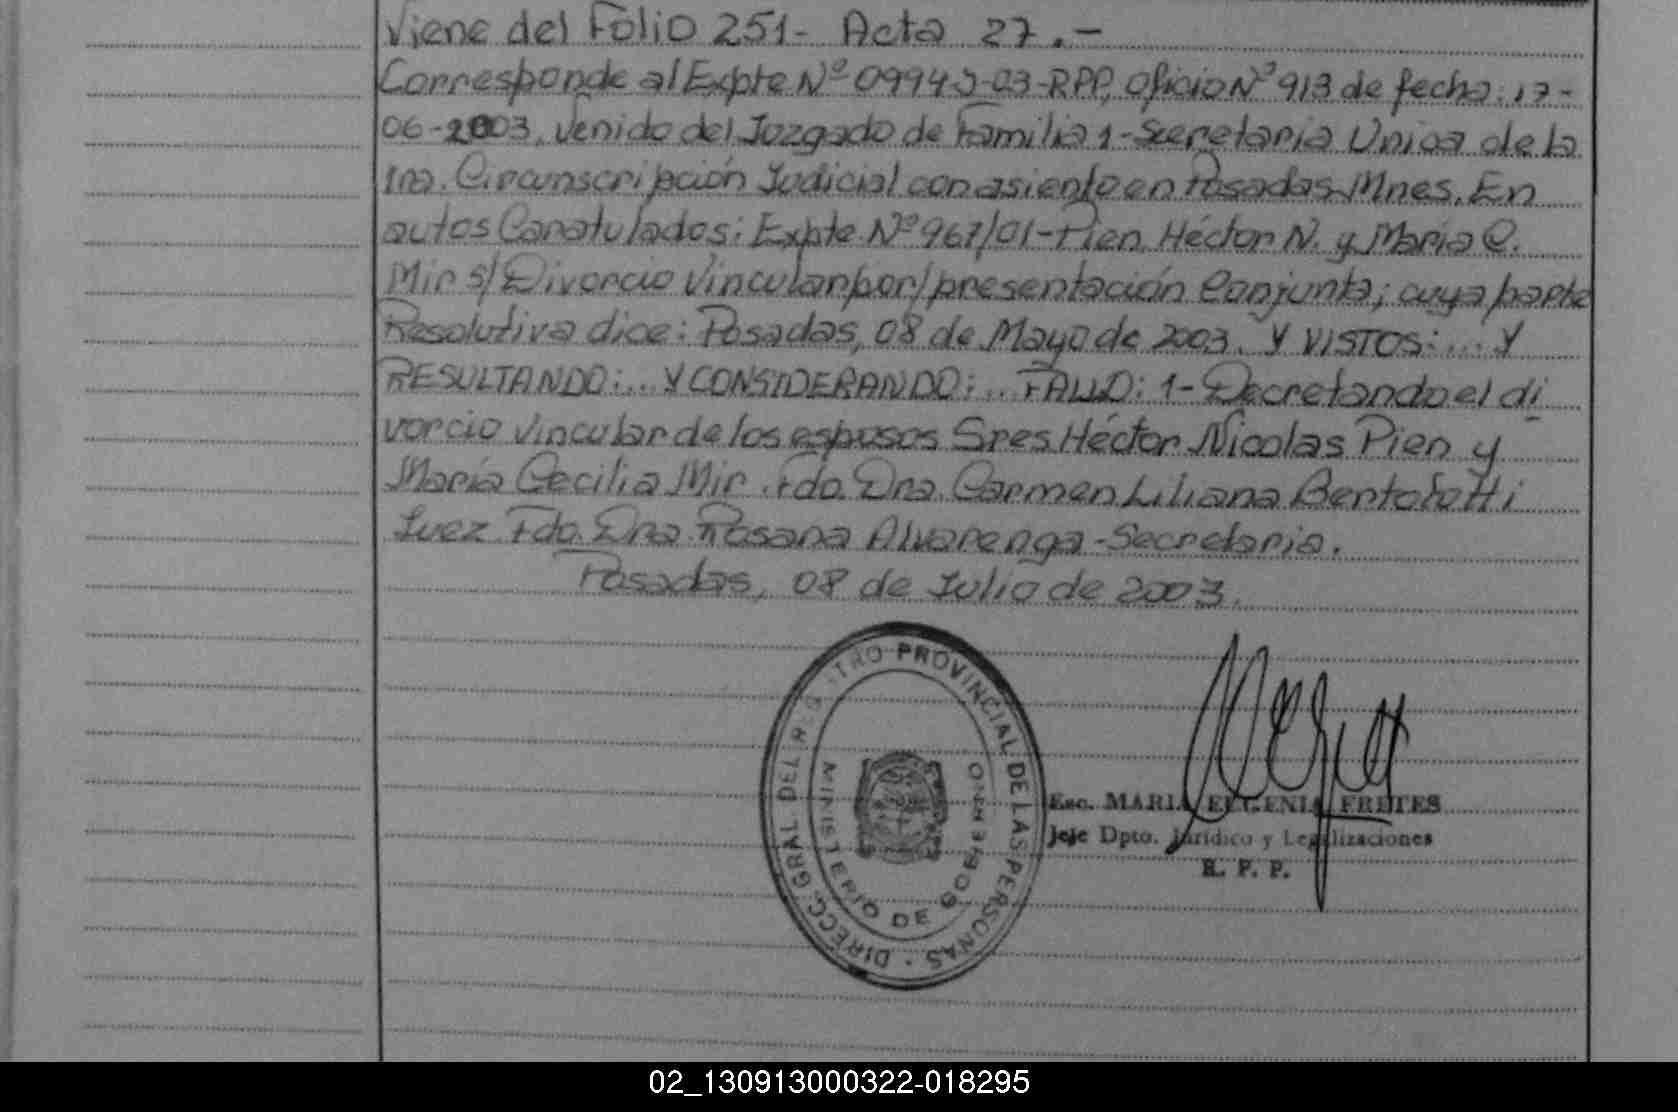 Viene del Folio 251- Acta 27.-
Corresponde al Expte Nº 09945-03-RPP, Oficio Nº 913 de fecha: 17-
06-2003, venido del Juzgado de Familia 1-Secretaría Unica de la
1ra. Circunscripción Judicial con asiento en Posadas, Mnes. En
autos Caratulados: Expte. Nº 967/01-Pien, Héctor N. y María C.
Mir s/Divorcio Vincular por/presentación Conjunta; cuya parte
Resolutiva dice: Posadas, 08 de Mayo de 2003. Y VISTOS:... Y
RESULTANDO:... Y CONSIDERANDO:... FALLO: 1-Decretando el di
vorcio vincular de los esposos Sres Héctor Nicolas Pien y
María Cecilia Mir. Fdo. Dra. Carmen Liliana Bertolotti
Juez. Fdo. Dra Rosana Alvarenga-Secretaria.
Posadas, 08 de Julio de 2003.
DIRECC. GRAL. DEL REG TRO PROVINCIAL DE LAS PERSONAS
MINISTERIO DE GOBIERNO
Esc. MARIA EUGENIA FREITES
Jefe Dpto. Jurídico y Legalizaciones
R. P. P.
02_130913000322-018295